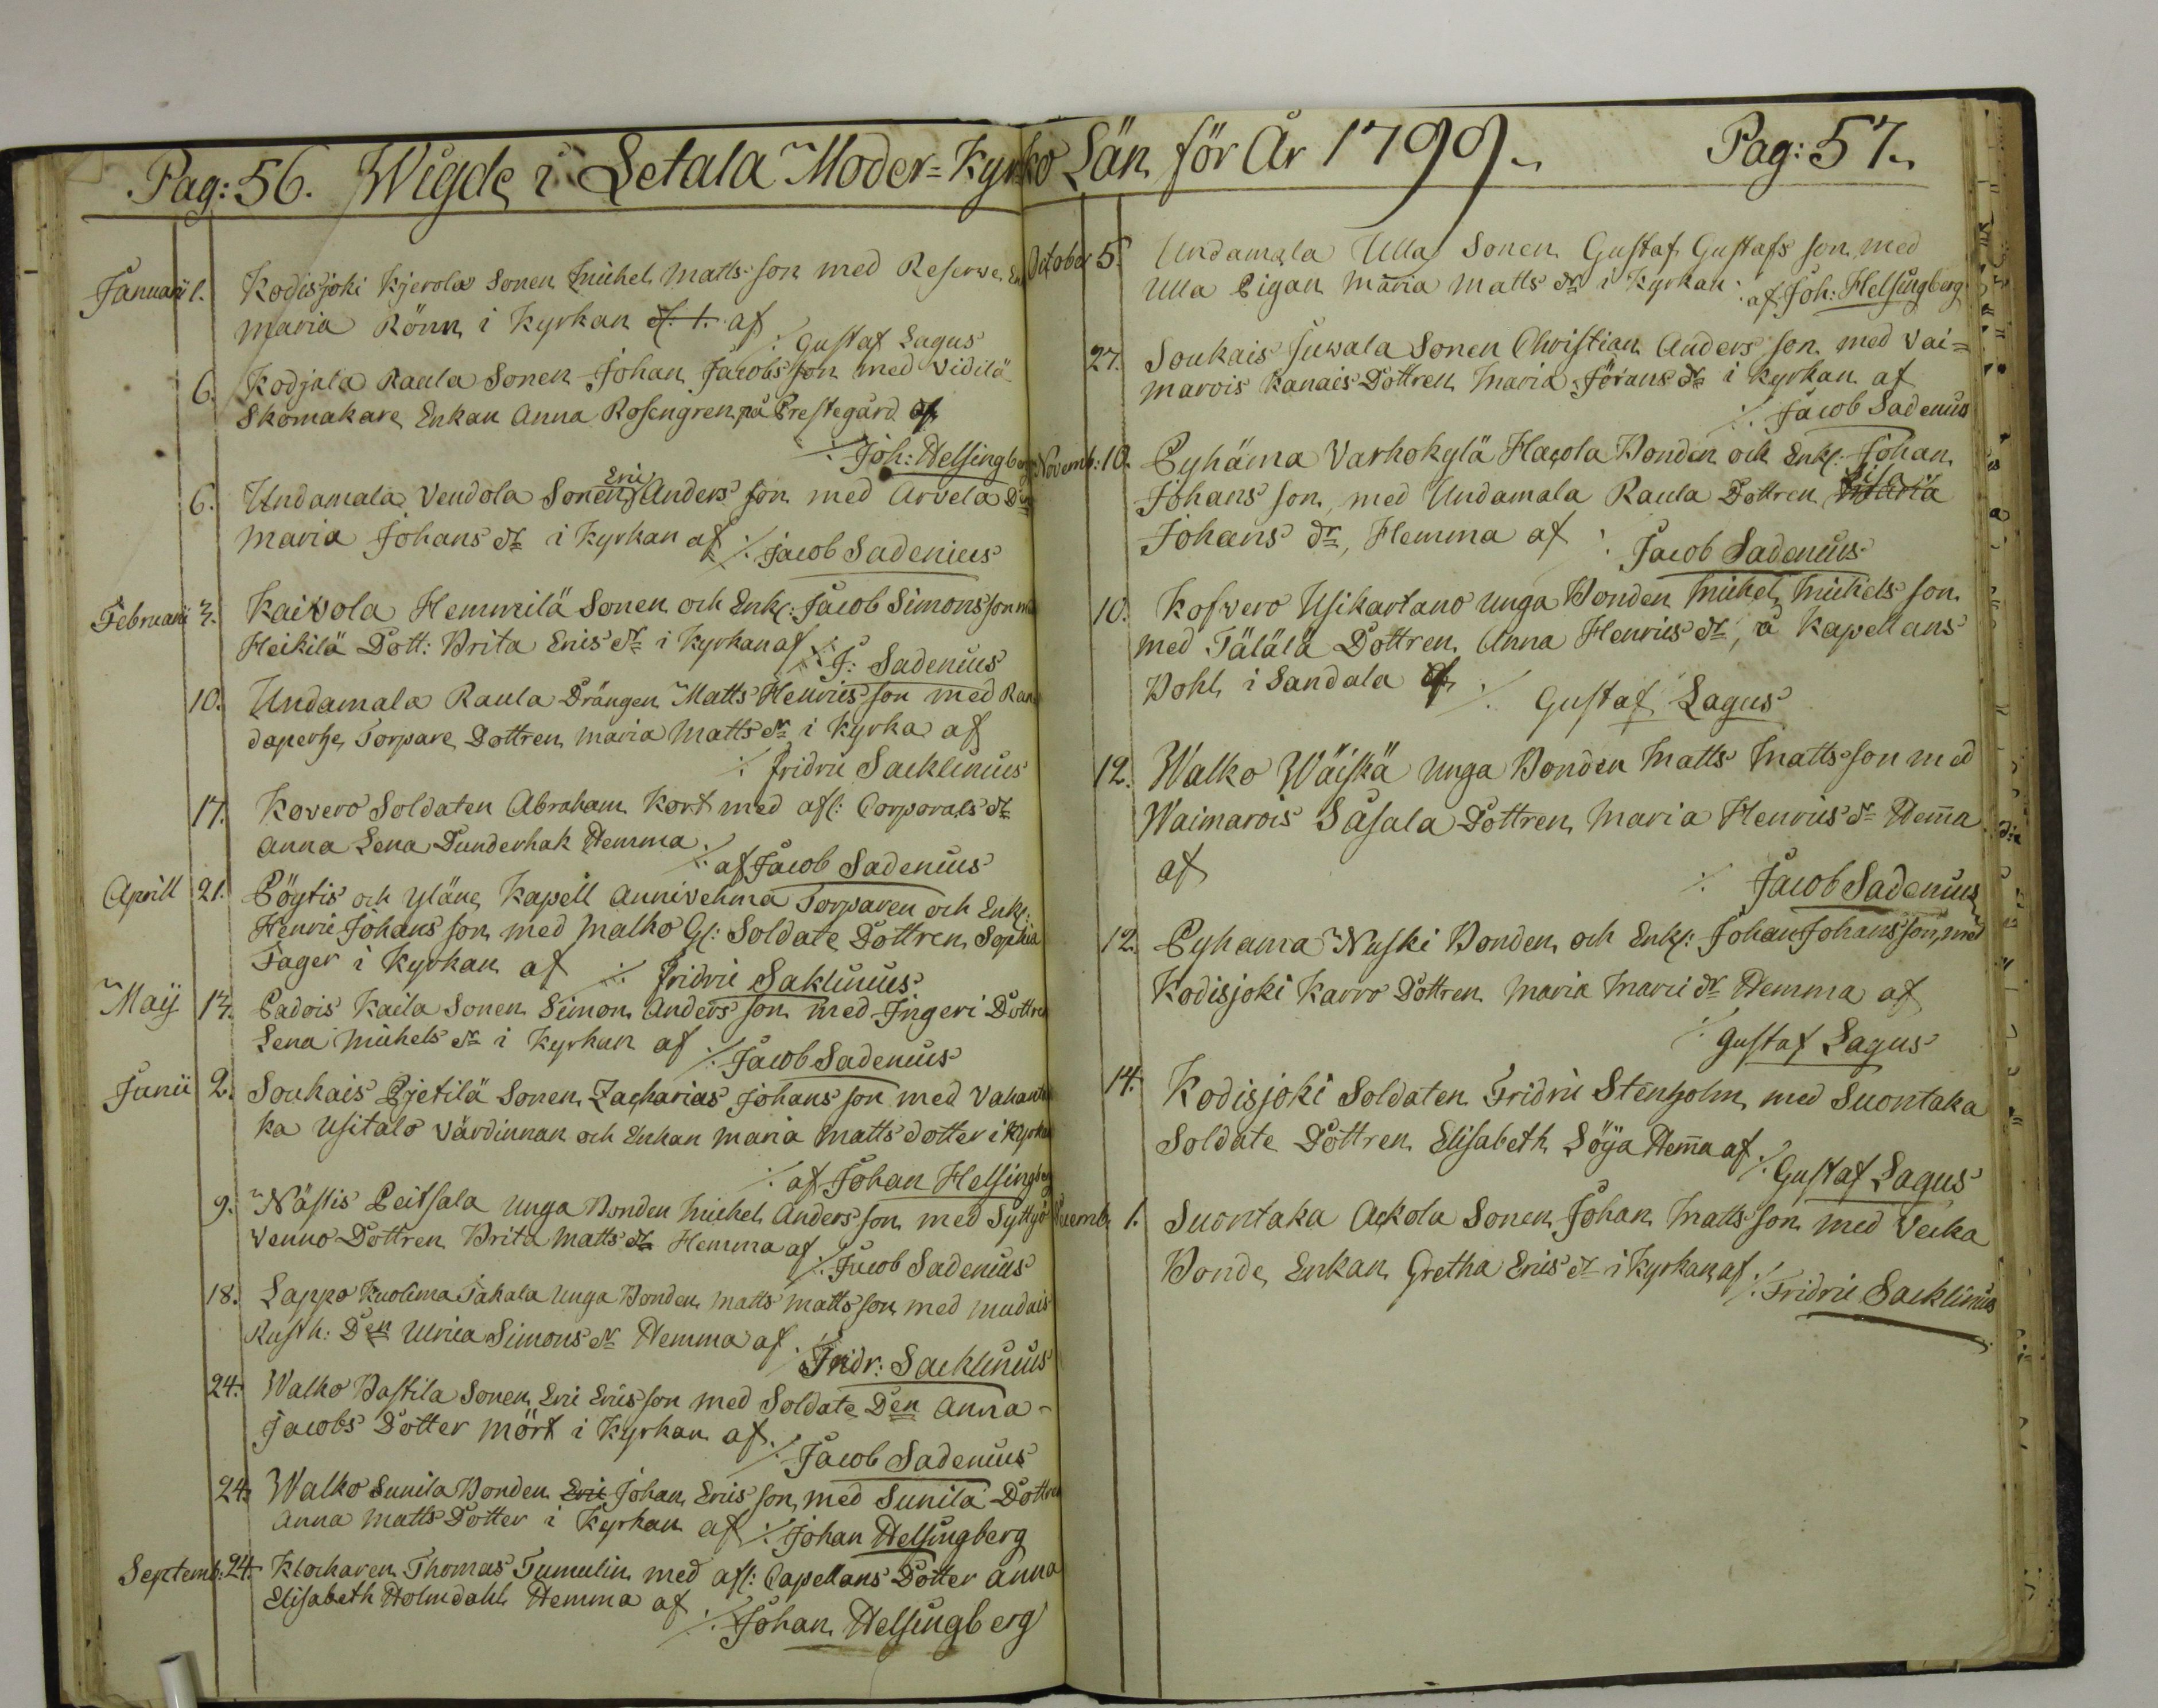 Pag: 56. Wigde i Letala Moder=Kyrko Län för År 1799. Pag: 57.
Januarii 1. Kodisjoki Kjerola Sonen Michel Matts son med Reserwe
Maria Rönn i Kyrkan af
Gustaf Lagus
6. Kodjala Raula Sonen Johan Jacobs son med Vidilä
Skomakare Enkan Anna Rosengren på Prestegård af
Joh: Helsingberg
6. Undamala Vendola Sonen Eric Anders son med Arvela Dn
Maria Johans dr i Kyrkan af Jacob Sadenius
Februarii 3. Kaivola Hemmilä Sonen och Enkl: Jacob Simons son
Heikilä Dott: Brita Erics dr i Kyrkan af J: Sadenius
10. Undamala Raula Drängen Matts Henrics son med
Torpare Dottren Maria Matts dr i Kyrka af
Fridric Sacklinius
17. Kovero Soldaten Abraham Kort med afl: Corporals dr
Anna Lena Dunderhak Hemma
af Jacob Sadenius
Aprill 21. Pöytis och Yläne Kapell Annivehma Torparen och Enkl:
Henric Johans son med Malko Gl: Soldate Dottren Sophia
Fager i Kyrkan af Fridric Saklinius
Maij 13. Padois Kaila Sonen Simon Anders son med Ingeri Dottren
Lena Michels dr i Kyrkan af Jacob Sadenius
Junii 2. Soukais Pjetilä Sonen Zacharias Johans son med
ka Usitalo Värdinnan och Enkan Maria Matts dotter i Kyrkan
af Johan Helsingberg
9. Nästis Peitsala Unga Bonden Michel Anders son med
Venno Dottren Brita Matts dr Hemma af Jacob Sadenius
18. Lappo Kuolima Takala Unga Bonden Matts Matts son med Mudais
Rusth: Den Ulrica Simons dr Hemma af
Fridr: Sacklinius
24. Walko Bastila Sonen Eric Erics son med Soldate Den Anna
Jacobs Dotter Mört i Kyrkan af
Jacob Sadenius
24. Walko Sunila Bonden Eric Johan Erics son, med Sunila Dottren
Anna Matts Dotter i Kyrkan af Johan Helsingberg
Septemb: 24. Klockaren Thomas Tumulin med afl: Capellans Dotter Anna
Elisabeth Holmdahl Hemma af
Johan Helsingberg
October 5. Undamala Ulla Sonen Gustaf Gustafs son med
Ulla Pigan Maria Matts dr i Kyrkan af Joh: Helsingberg
27. Soukais Juwala Sonen Christian Anders son med Vai=
marois Kanais Dottren Maria Jörans dr i Kyrkan af
Jacob Sadenius
Novemb: 10. Pyhäma Varhokylä Bonden och Enkl: Johan
Johans son, med Undamala Raula Dottren
Johans dr, Hemma af Jacob Sadenius
10. Kofvero Usikartano unga Bonden Michel Michels son
med Tälälä Dottren Anna Henrics dr, å Kapellans
Bohl i Sandala af Gustaf Lagus
12. Walko Wäiskä Unga Bonden Matts Matts son med
Waimarois Sasala Dottren Maria Henrics dr Hem̄a
af
Jacob Sadenius
12. Pyhama Nuski Bonden och Enkl: Johan Johans son, med
Kodisjoki Karro Dottren Maria Marii dr Hemma af
Gustaf Lagus
14. Kodisjoki Soldaten Fridric Stenholm med Suontaka
Soldate Dottren Elisabeth Löya Hem̄a af
Gustaf Lagus
1. Suontaka Ackola Sonen Johan Matts son med Vecka
Bonde Enkan Gretha Erics dr i Kyrkan af
Fridric Sacklinius